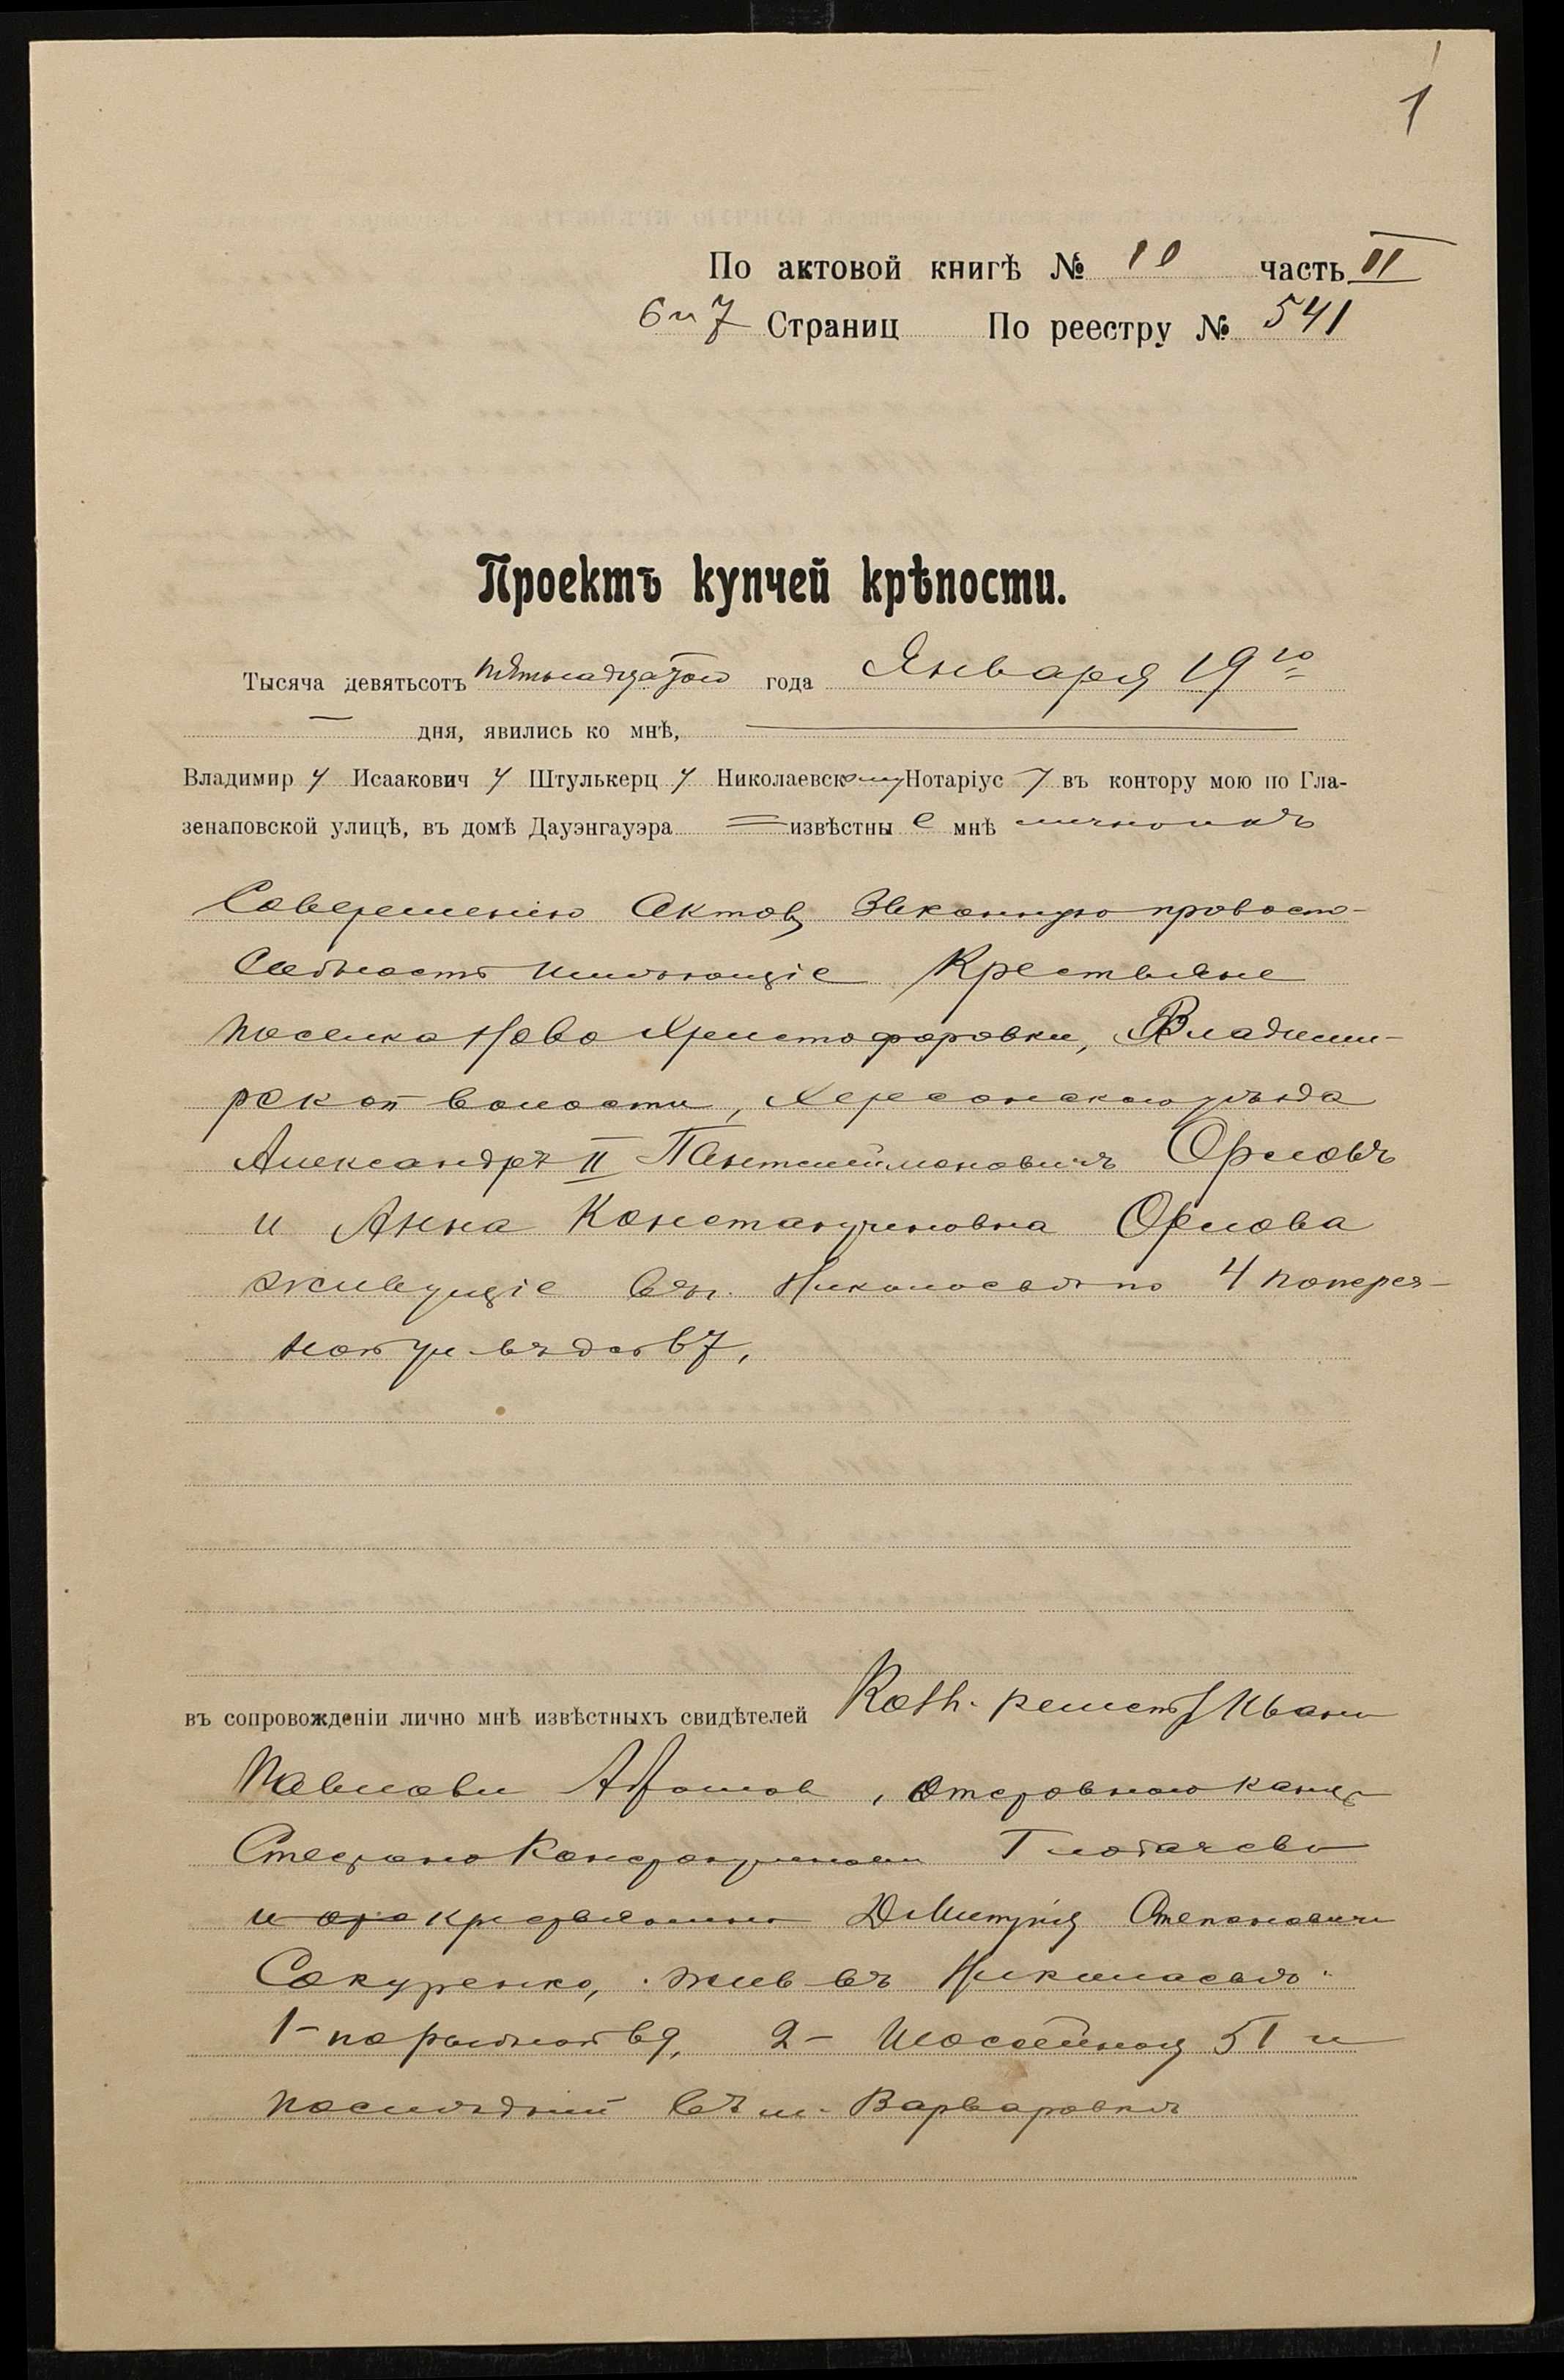 1
По актовой книгѣ № 10 часть II
6 и 7 Страниц По реестру № 541
Проектъ купчей крѣпости.
Тысяча девятьсотъ пятнадцатого года Января 19го
дня, явились ко мнѣ,
Владимир у Исаакович у Штулькерц у Николаевскому Нотаріус у въ контору мою по Гла-
зенаповской улицѣ, въ домѣ Дауэнгауэра извѣстны е мнѣ лично и къ
Совершенію Актовъ Законную провосто-
собность имѣющіе Крестьяне
поселка Ново Христофоровки, Владими-
рской волости, Херсонского уѣзда
Александръ II Пантелеймоновичъ Орловъ
и Анна Константиновна Орлова
живущіе въ г. Николаевѣ по 4 попереч-
ной ул въ д № 67,
въ сопровожденіи лично мнѣ извѣстныхъ свидѣтелей Иван
Павлови , отставного канц
Константинови
и крестьянина Димитрія Степанович
Сокуренко, жив въ Николаевѣ
1- по 2- Шоссейной 51 и
послѣдній въ м. Варваровкѣ